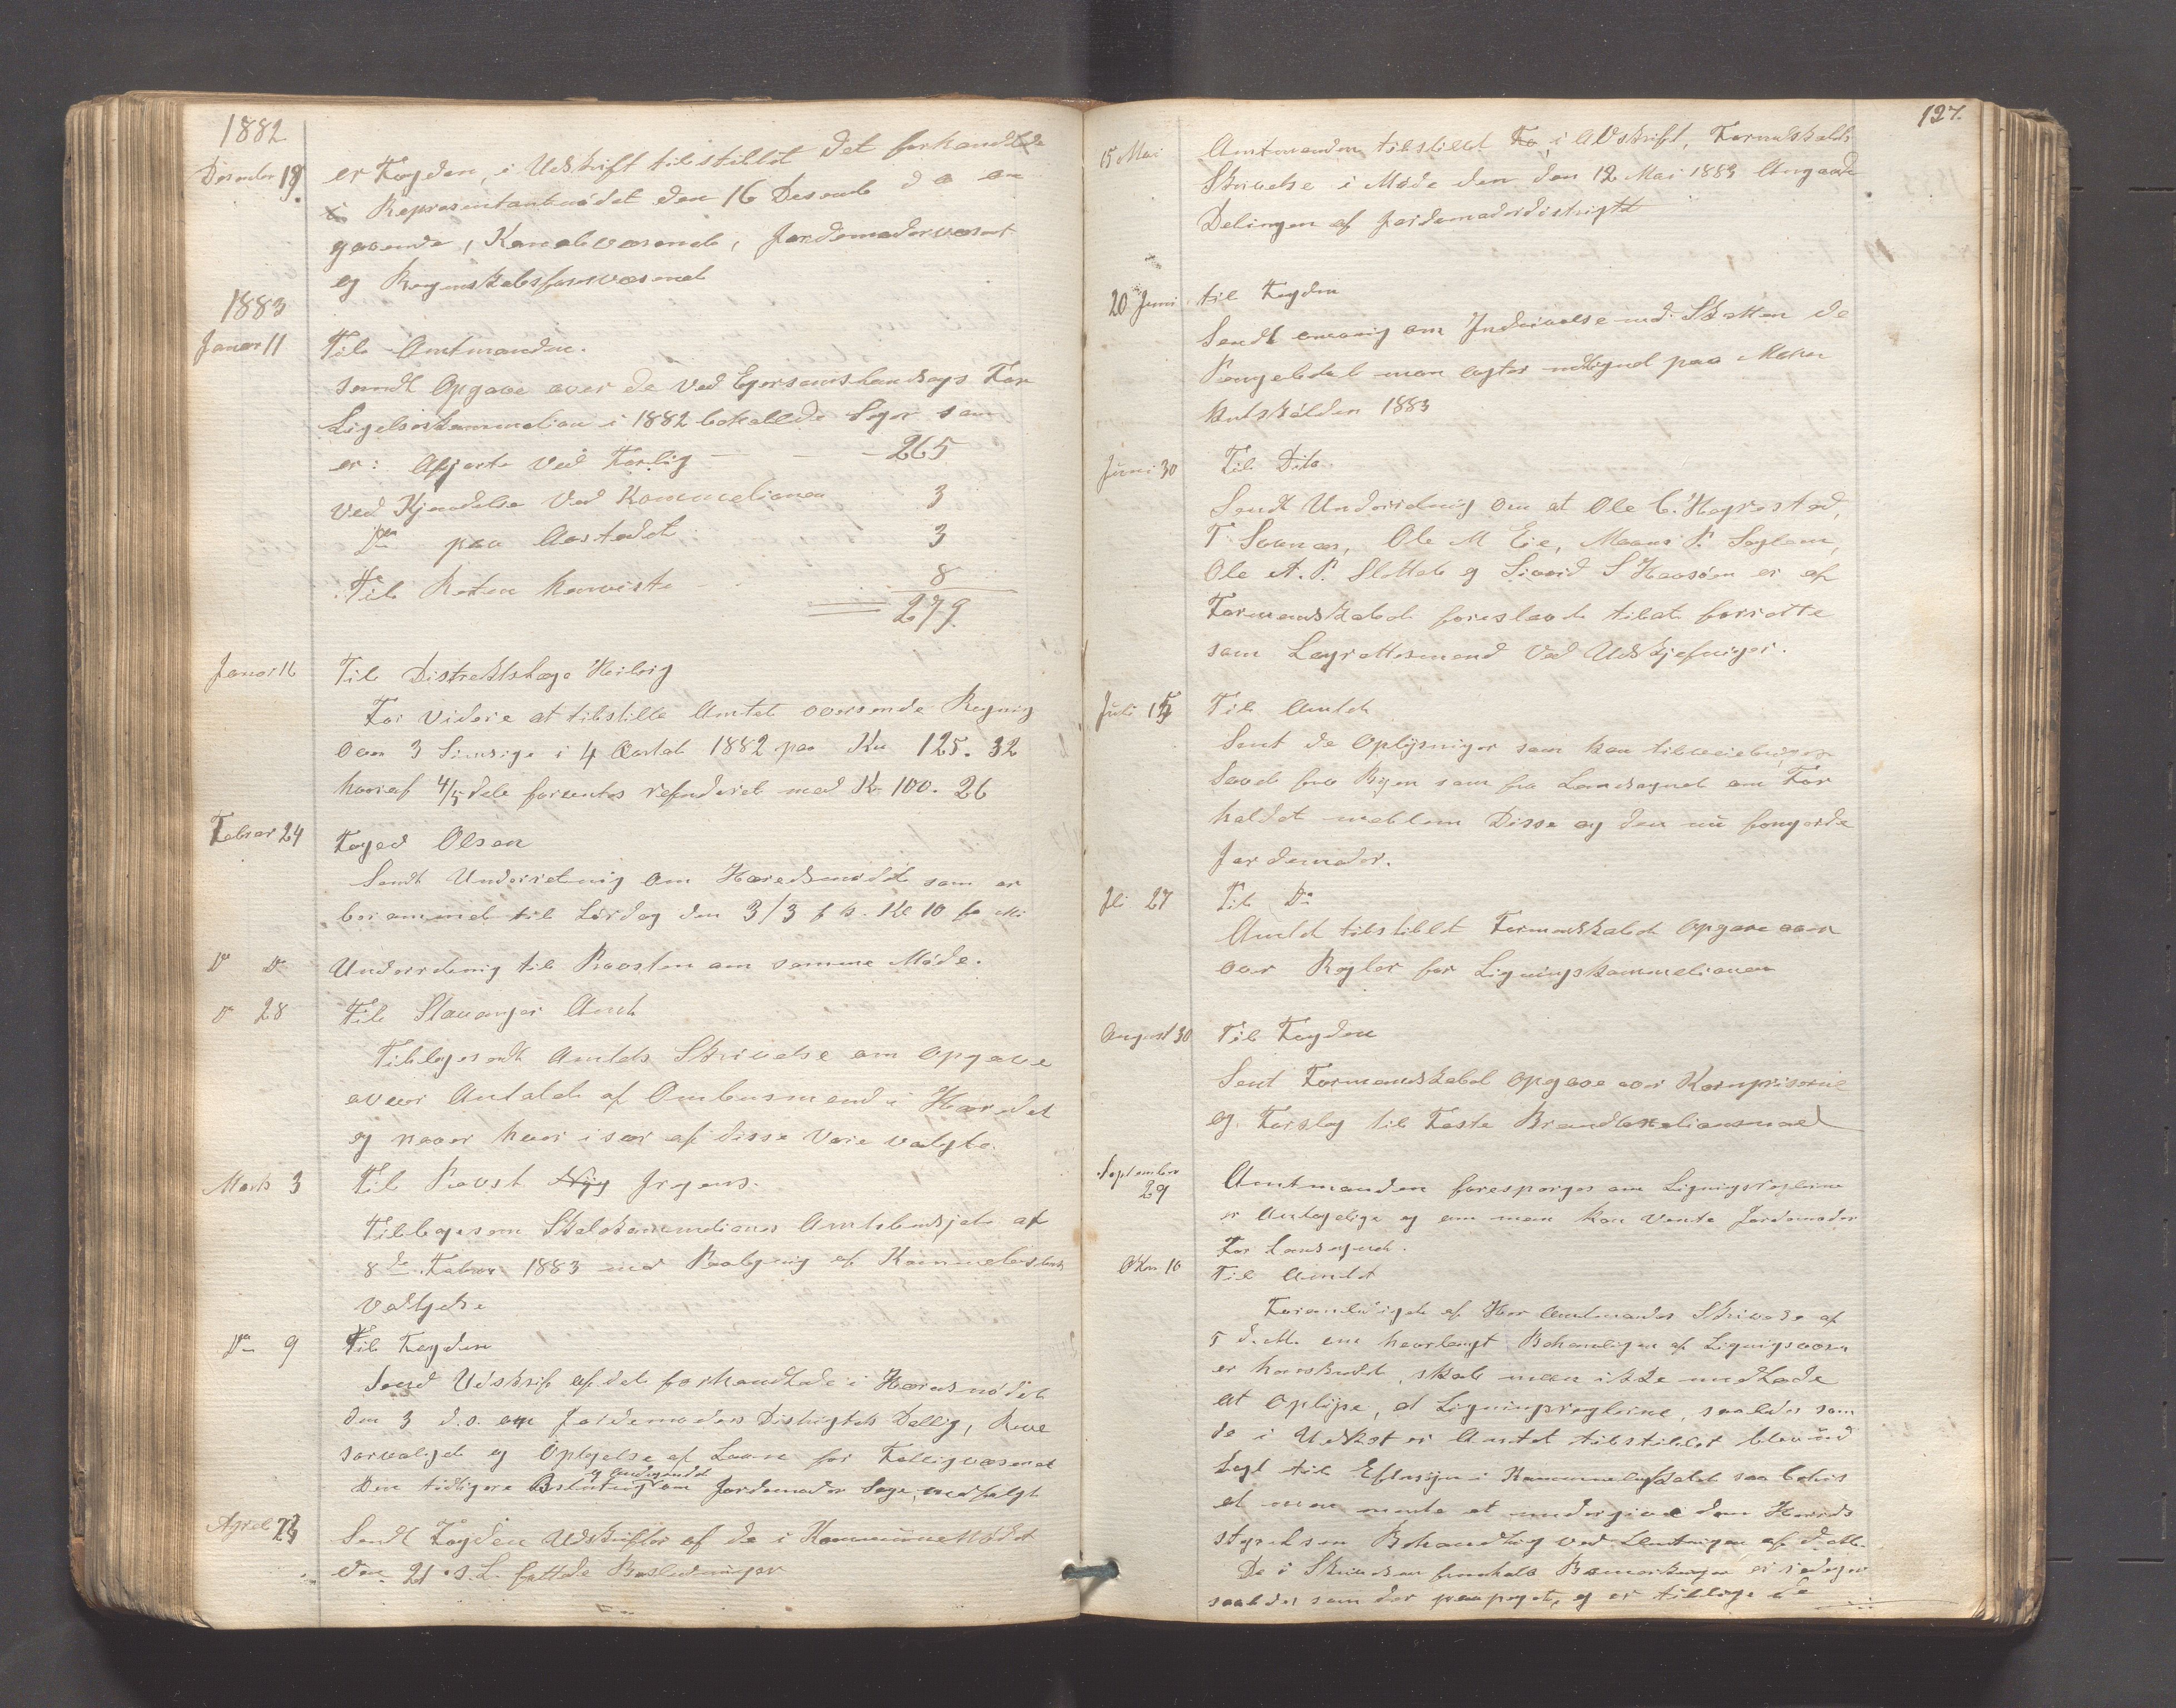 1882
Desember 19. er Fogden, i Udskrift tilstillet det forhandlede
i Representantmødet den 16 Desemb d a an
gaaende, Kanalvæsenet, Jordemodervæsent
og Regnskabsforvæsenet
1883
Januar 11 Til Amtmanden.
Sendt Opgave over de ved Egersunds Landsogns For
Ligelseskommelion i 1882 behallede Sager som
er: Afgjorte ved Forlig - - - 265
Ved Kjendelse ved Kommelionen 3
Do paa Aastedet 3
Til Retten henviste 8
279
Januar 16 Til Distrektslæge Heiberg
For videre at tilstille Amtet oversende Regning
over 3 Sindsige i 4 Qvartal 1882 paa Kr 125. 32
hvoraf 4/5 dele forventes refunderet med Kr. 100. 26
Februar 24 Foged Olsen
Sendt Underretning om Heredsmødet som er
berammet til Lørdag den 3/3 f k. Kl 10 fo Mi
Do Do Underretning til Provsten om samme Møde.
Do 28 Til Stavanger Amt
Tilbagesendt Amtets Skrivelse om Opgave
over Antalet af Ombusmend i Heredet
og naar hver især af disse vare valgte.
Marts 3 Til Provst Nyg Jrgens.
Tilbagesent Skolekommelionens Amtsbudsjet af
8de Februar 1883 med Paategning af Kommebestyrelsens
vedtagelse
Do 9 Til Fogden
Send Udskrift af det forhandlede i Heredsmødet
den 3 d.s. om Jordemoders Distrigtets Delling, Reve
sorvalget og Optagelse af Laan for Fattigvæsenet
og andragendet
Den tidligere Beslutning om Jordemoder Sage, medfulgt
April 23 Sendt Fogden Udskrifter af de i Kommunemødet
den 21 d.s. fattede Beslutninger
127.
15 Mai Amtmanden tilstillet Fo i Avskrift, Formandskabets
Skrivelse i Møde den den 12 Mai 1883 Angaaende
Delingen af Jordemoderdistrigtet
20 Juni til Fogden
Sendt om Inddrivelse med Skatten de
Pengebeløb man agter udlignet paa Mater
kulskylden 1883
Juni 30 Til Dito.
Sendt Underretning om at Ole C. Høgrestad,
T. Saanæs, Ole M Eie, Maans P. Sagland,
Ole A. P. Slettebø og Sivert S Havsøen er af
Formandskabet foreslaaet tilat forrette
som Lagrettesmend ved Udskjefninger.
Juli 15 Til Amtet
Sent de Oplysninger som kan tilveiebringes
Saavel fra Byen som fra Landsognet om For
holdet mellem Disse og den nu fongerende
Jordemoder.
Juli 27 Til Do
Amtet tilstillet Formandskabets Opgave over
over Regler for Ligningskommelionen
August 30 Til Fogden
Sent Formandskabet Opgave over Kornpriserne
og Forslag til Faste Brandtaxtionsmænd
September
29 Amtmanden foresporges om Ligningsreglerne
er Antagelige og om man kan vente Jordemoder
for Landsognet.
Oktbr 10 Til Amtet
Foranlediget af Herr Amtmandes Skrivelse af
5 d.M. om hvorlangt Behandligen af Ligningsvæsen
er fremskredet, skal man ikke undlade
at oplyse, at Ligningsreglerne, saaledes som
de i Udkast er Amtet tilstillet blev ud
lagt til Eftersyn i Kommunelokalet saaledes
at man mente at undergive dem Hereds
styrelsen Behandling ved Slutningen af d.M.
De i Skrivelsen fremholdt Bemerkninger er
saaledes som der paapeget, og er tillige de